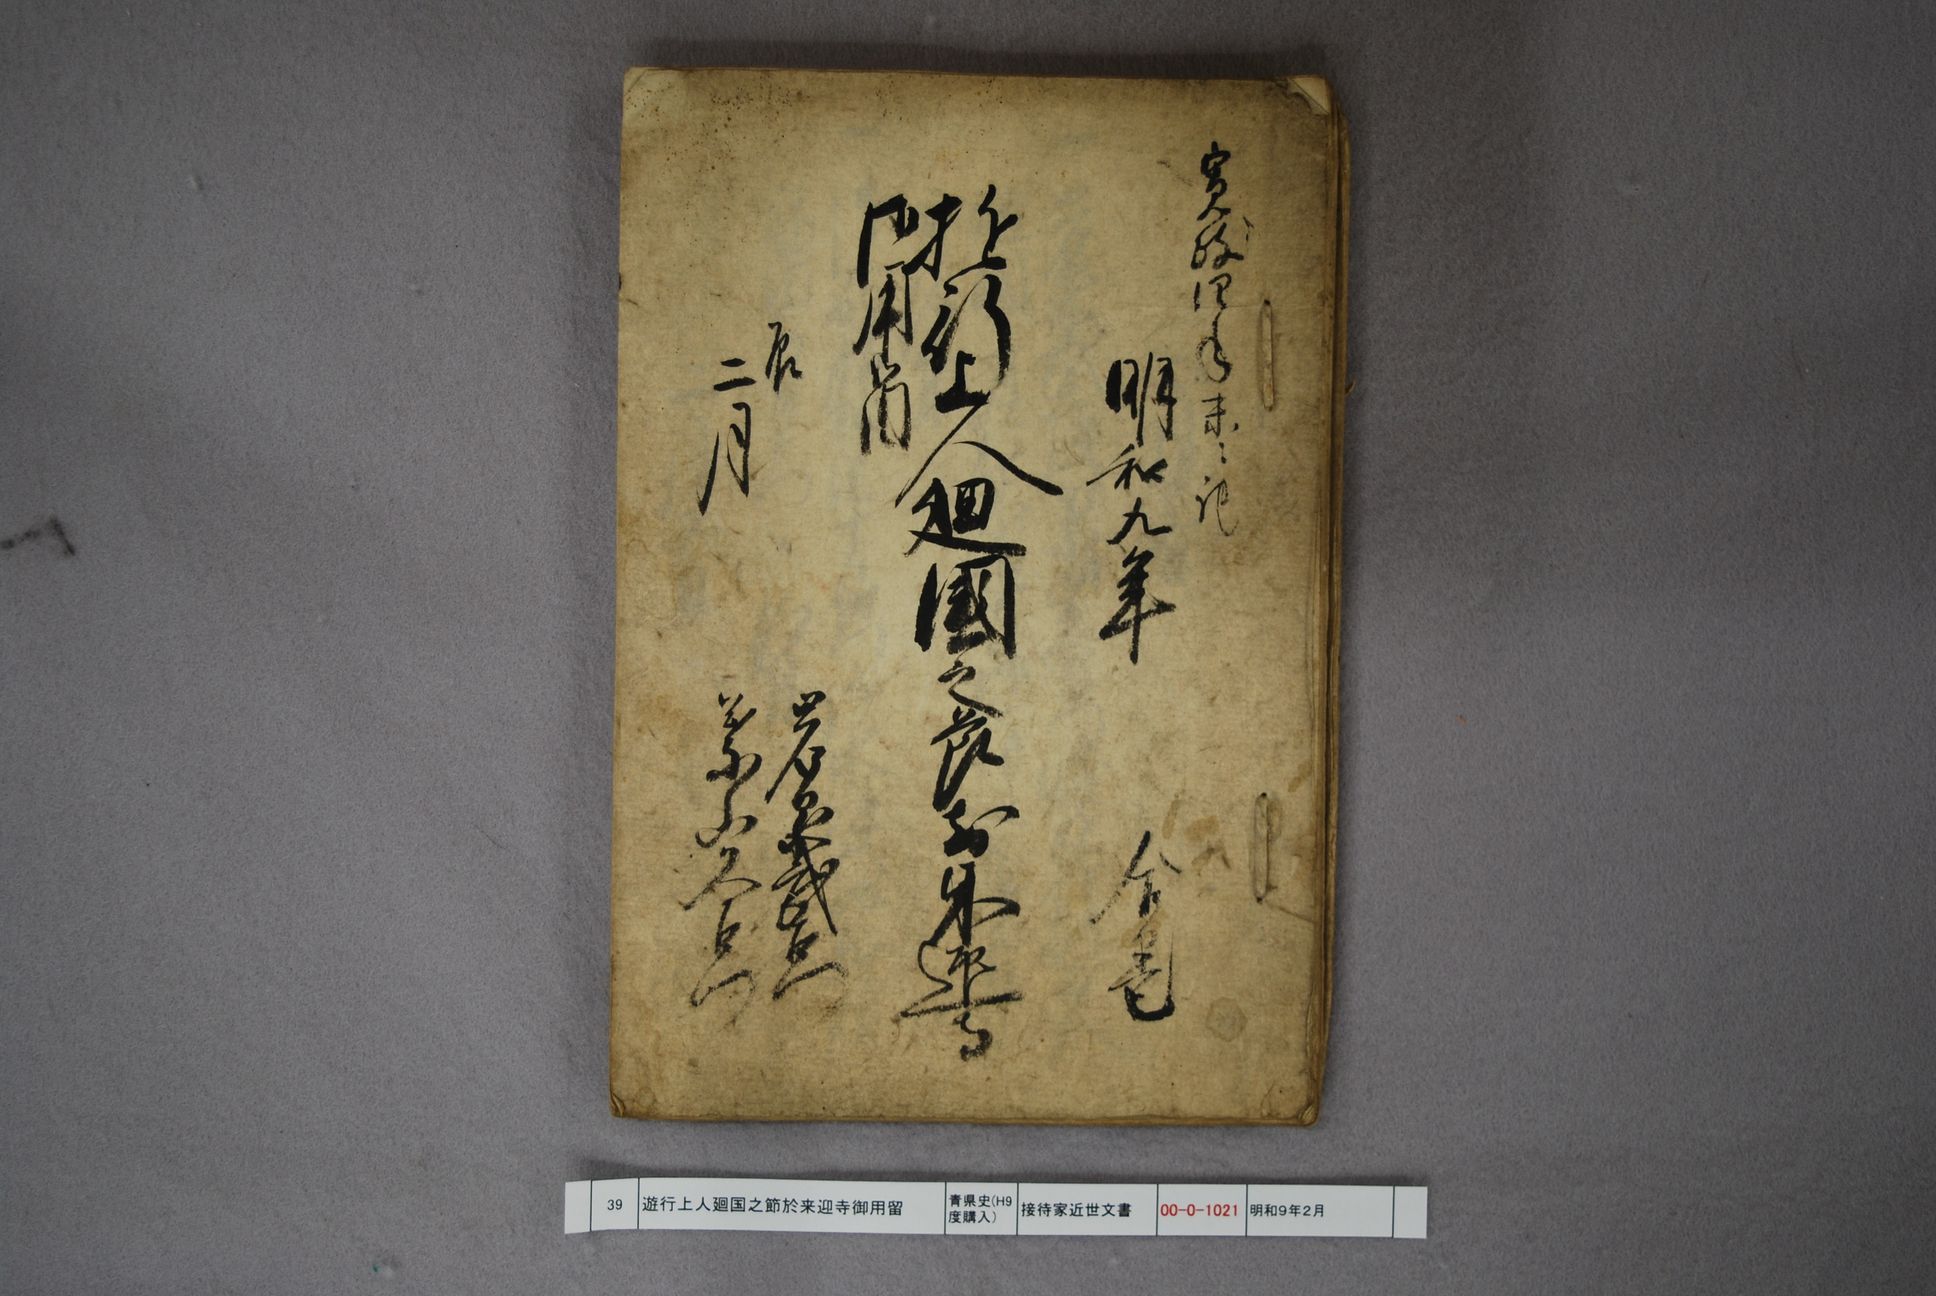 寛政四年未ニ記
明和九年
合巻
遊行上人廻國之節於来迎寺
御用留
辰
二月
39 遊行上人廻国之節於来迎寺御用留 青県史(H9度購入) 接待家近世文書 00-0-1021 明和9年2月